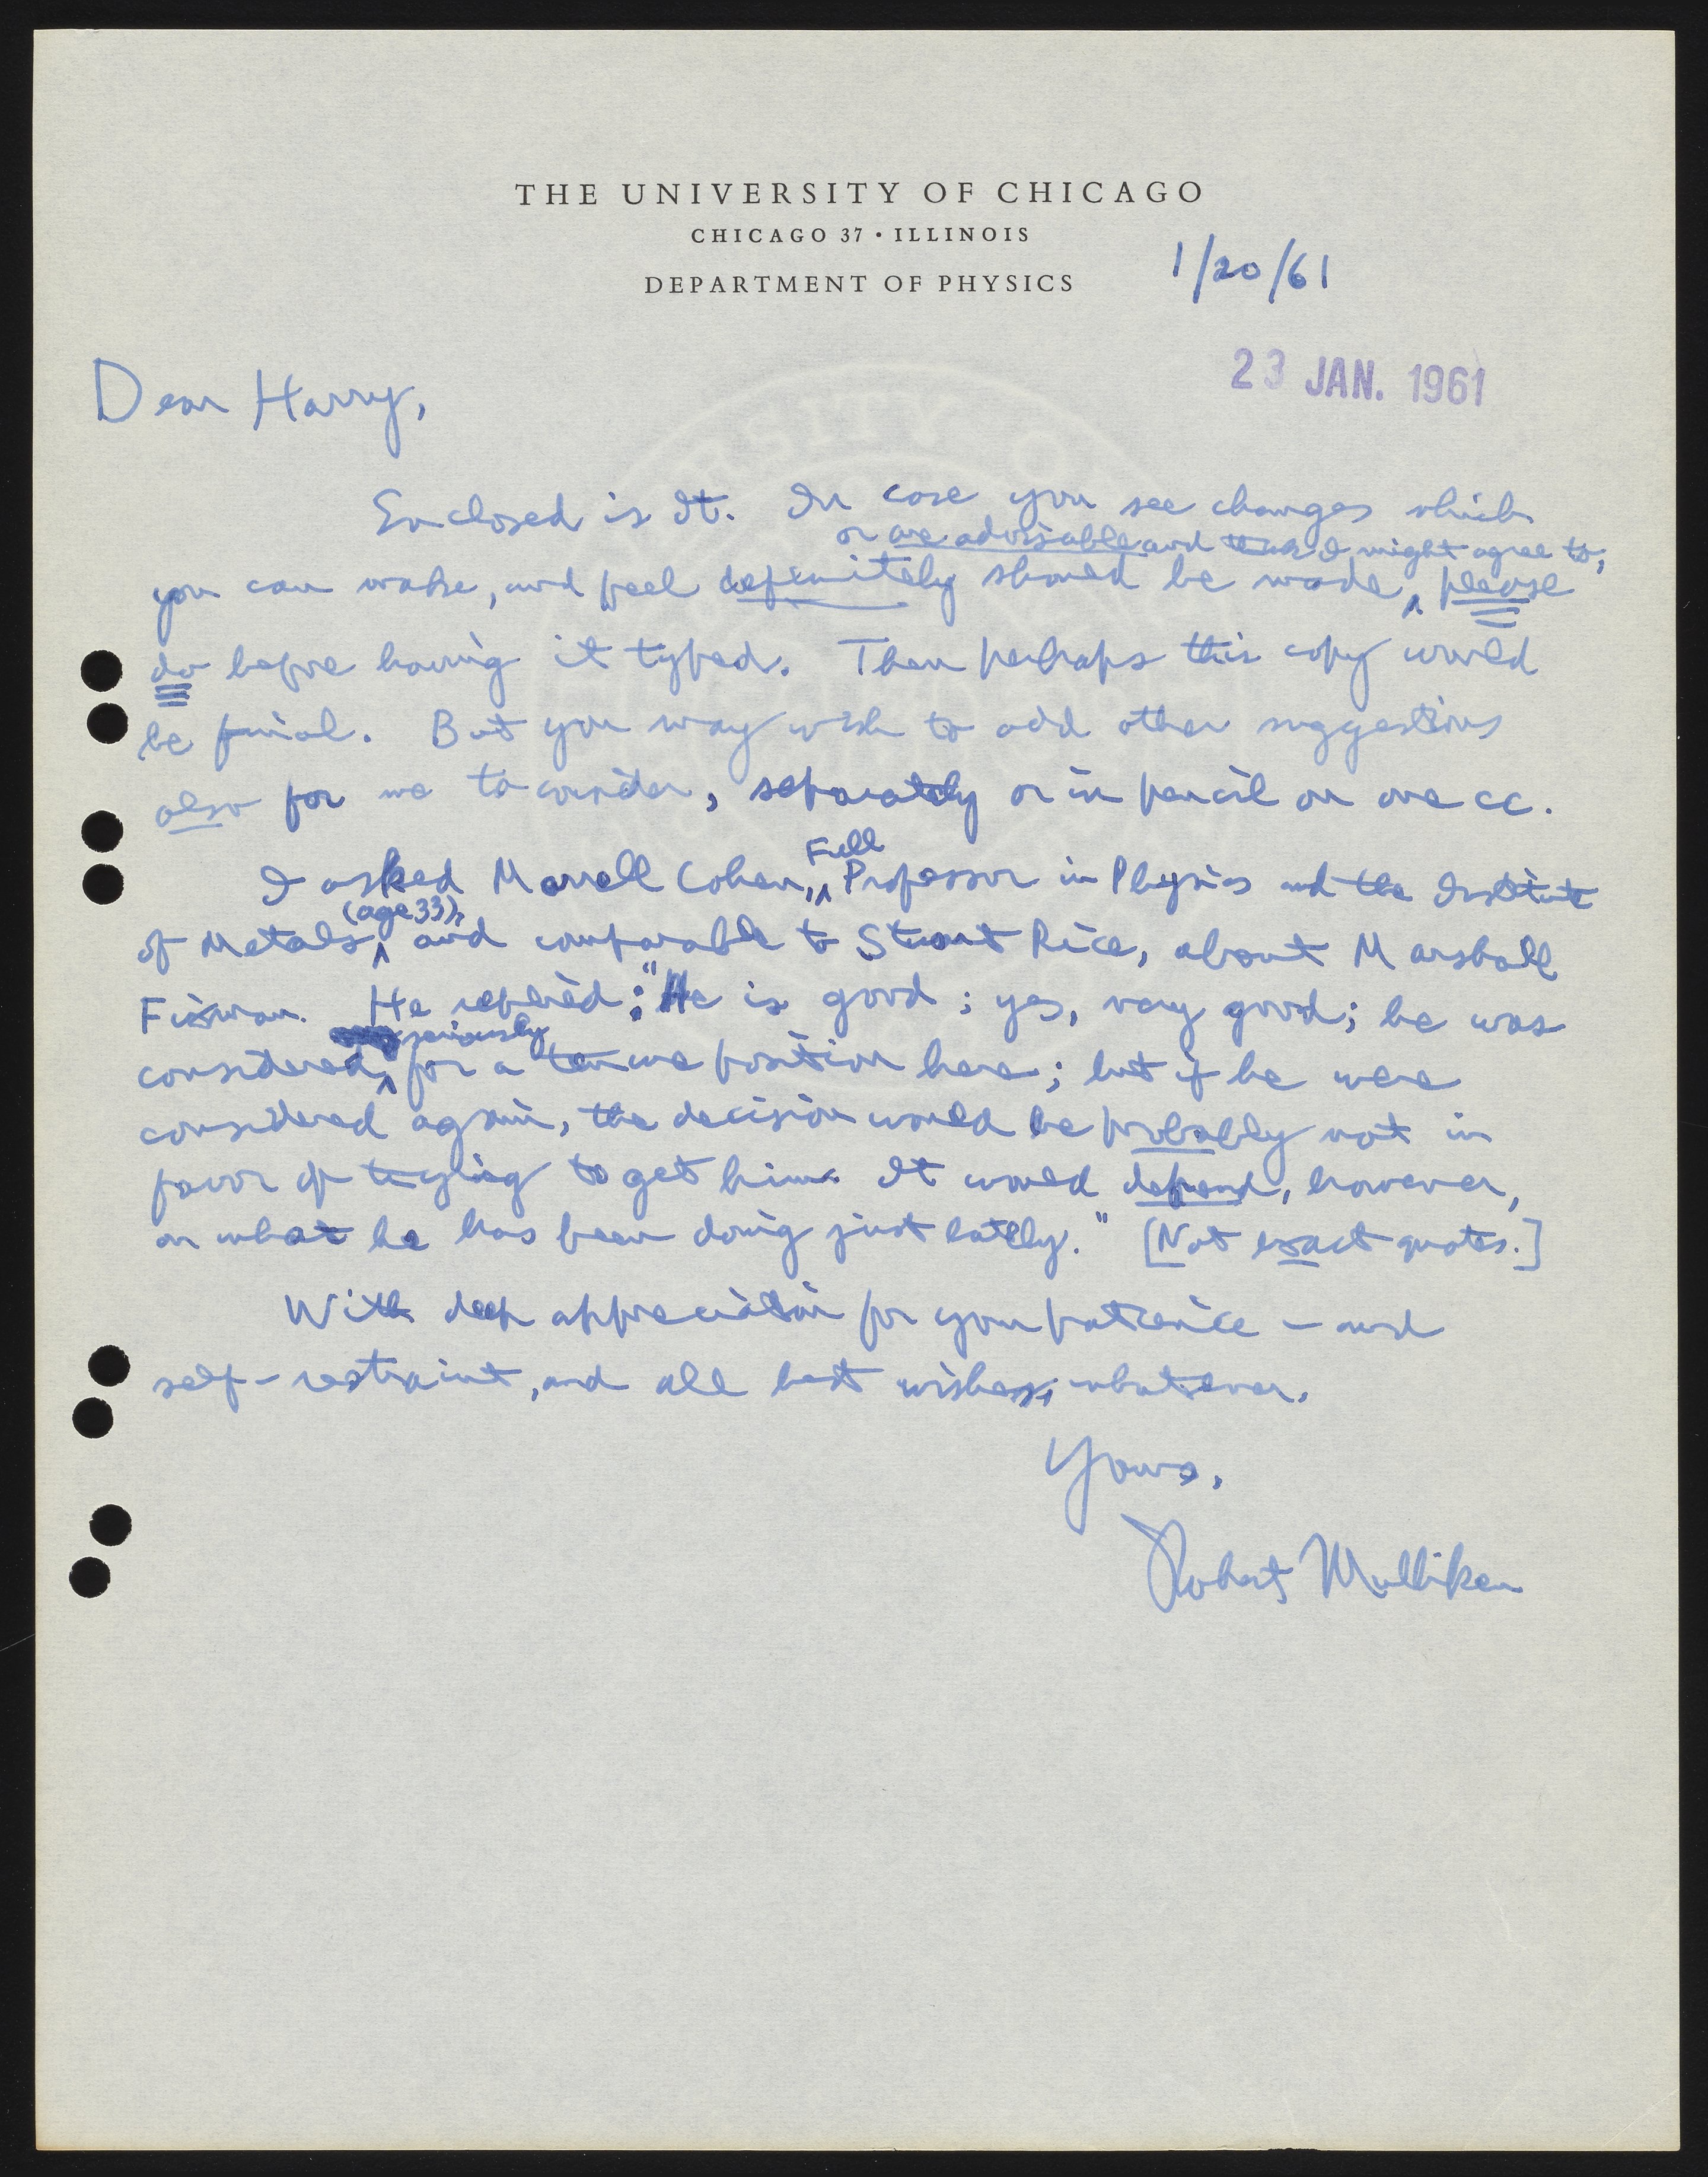 THE UNIVERSITY OF CHICAGO
CHICAGO 37 • ILLINOIS
DEPARTMENT OF PHYSICS
1/20/61
23 JAN. 1961
Dear Harry,
Enclosed is It. In case you see changes which
or are advisable and I might agree to,
you can make, and feel definitely should be made, please
do before having it typed. Then perhaps this copy would
be final. But you may wish to add other suggestions
also for me to consider, separately or in pencil on one cc.
Full
I asked Morrell Cohen, Professor in Physics and the Institute
(age 33),
of Metals, and comparable to Stuart Rice, about Marshall
Fixman. He replied: "He is good; yes, very good; he was
seriously
considered for a tenure position here; but if he were
considered again, the decision would be probably not in
favor of trying to get him. It would depend, however,
on what he has been doing just lately." [Not exact quotes.]
With deep appreciation for your patience – and
self-restraint, and all best wishes, whatever.
Yours,
Robert Mulliken